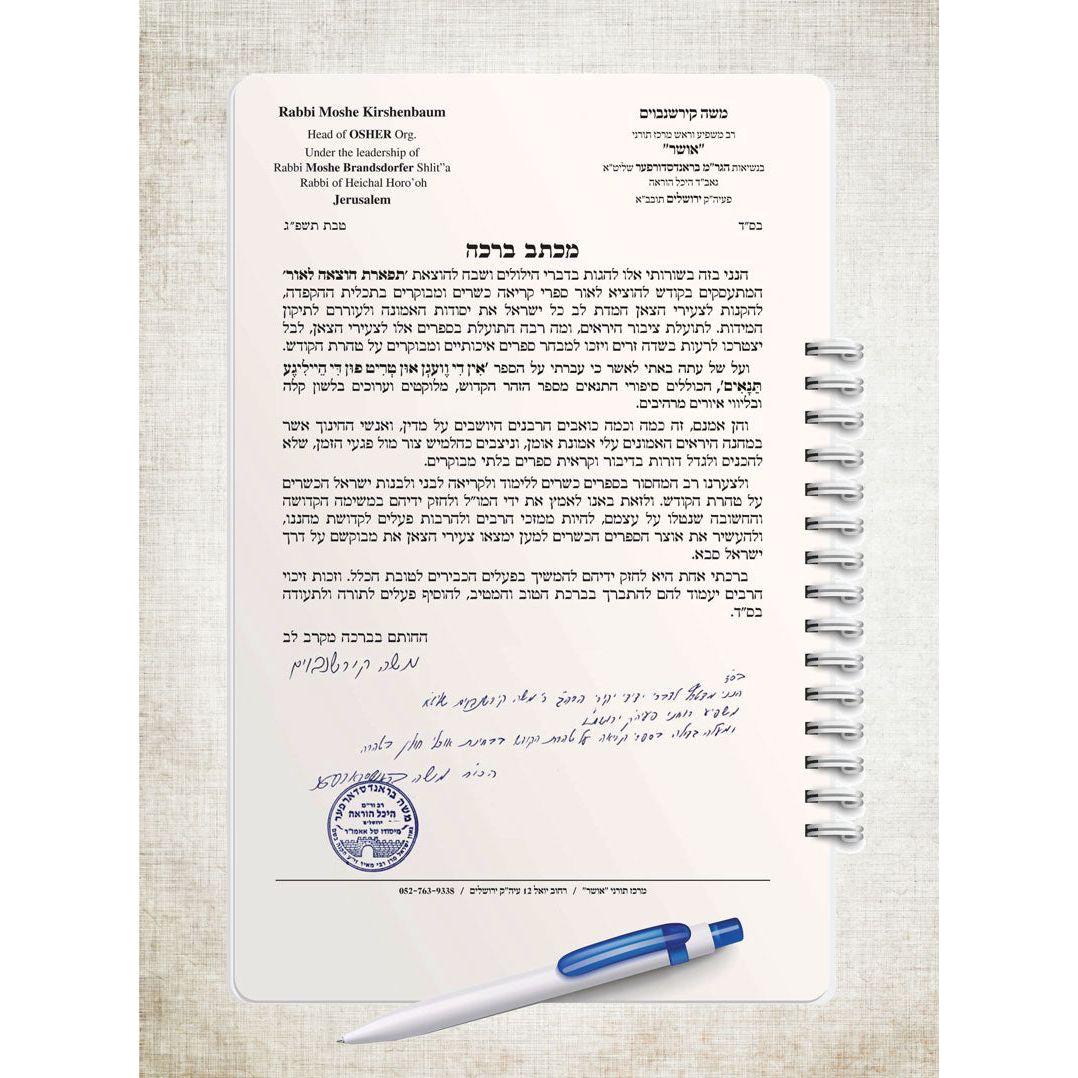 Rabbi Moshe Kirshenbaum
Head of OSHER Org.
Under the leadership of
Rabbi Moshe Brandsdorfer Shlit"a
Rabbi of Heichal Horo'oh
Jerusalem
משה קירשנבוים
רב משפיע וראש מרכז תורני
"אושר"
בנשיאות הגר"מ בראנדסדורפער שליט"א
גאב"ד היכל הוראה
פעיה"ק ירושלים תובב"א
בס"ד
טבת תשפ"ג
מכתב ברכה
הנני בזה בשורותי אלו להגות בדברי הילולים ושבח להוצאת 'תפארת הוצאה לאור'
המתעסקים בקודש להוציא לאור ספרי קריאה כשרים ומבוקרים בתכלית ההקפדה,
להקנות לצעירי הצאן חמדת לב כל ישראל את יסודות האמונה ולעוררם לתיקון
המידות. לתועלת ציבור היראים, ומה רבה התועלת בספרים אלו לצעירי הצאן, לבל
יצטרכו לרעות בשדה זרים ויזכו למבחר ספרים איכותיים ומבוקרים על טהרת הקודש.
ועל של עתה באתי לאשר כי עברתי על הספר 'אִין דִי וֶועגְן אוּן טְרִיט פוּן דִי הֵיילִיגֶע
תַּנָאִים', הכוללים סיפורי התנאים מספר הזהר הקדוש, מלוקטים וערוכים בלשון קלה
ובליווי איורים מרהיבים.
והן אמנם, זה כמה וכמה כואבים הרבנים היושבים על מדין, ואנשי החינוך אשר
במחנה היראים האמונים עלי אמונת אומן, וניצבים כחלמיש צור מול פגעי הזמן, שלא
להכניס ולגדל דורות בדיבור וקראית ספרים בלתי מבוקרים.
ולצערנו רב המחסור בספרים כשרים ללימוד ולקריאה לבני ולבנות ישראל הכשרים
על טהרת הקודש. ולזאת באנו לאמץ את ידי המו"ל ולחזק ידיהם במשימה הקדושה
והחשובה שנטלו על עצמם, להיות ממזכי הרבים ולהרבות פעלים לקדושת מחננו,
ולהעשיר את אוצר הספרים הכשרים למען ימצאו צעירי הצאן את מבוקשם על דרך
ישראל סבא.
ברכתי אחת היא לחזק ידיהם להמשיך בפעלים הכבירים לטובת הכלל. וזכות זיכוי
הרבים יעמוד להם להתברך בברכת הטוב והמטיב, להוסיף פעלים לתורה ולתעודה
בס"ד.
החותם בברכה מקרב לב
משה קירשנבוים
בס"ד
הנני לדברי ידידי יקירי הרה"ג ר' משה קירשנבוים שליט"א
משפיע רוחני פעיה"ק ירושלים
בספרי קריאה על טהרת הקודש
הכו"ח משה בראנדסדארפער
משה בראנדסדארפער
רב ור"מ
היכל הוראה
ירושלים
מיסודו של אאמו"ר
מרכז תורני "אושר" / רחוב יואל 12 עיה"ק ירושלים / 052-763-9338